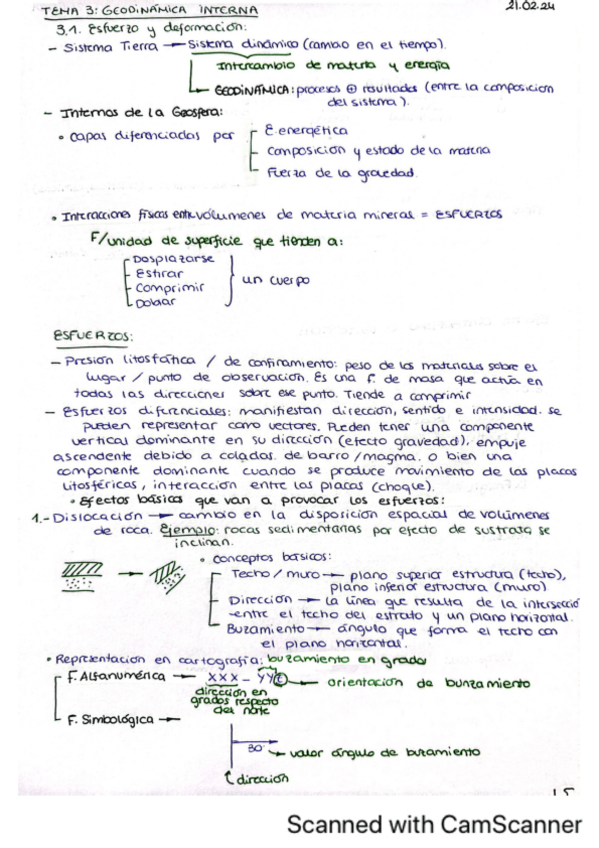 TEMA 3: GEODINÁMICA INTERNA
21.02.24
3.1. Esfuerzo y deformación:
- Sistema Tierra → Sistema dinámico (cambio en el tiempo).
Intercambio de materia y energía
GEODINÁMICA: procesos ⊕ resultados (entre la composición
del sistema).
- Internos de la Geosfera:
• capas diferenciadas por
E. energética
Composición y estado de la materia
Fuerza de la gravedad.
• Interacciones físicas entre volúmenes de materia mineras = ESFUERZOS
F/unidad de superficie que tienden a:
Desplazarse
Estirar
Comprimir
Doblar
un cuerpo
ESFUERZOS:
- Presión litostática / de confinamiento: peso de los materiales sobre el
lugar / punto de observación. Es una f. de masa que actúa en
todas las direcciones sobre ese punto. Tiende a comprimir
- Esfuerzos diferenciales: manifiestan dirección, sentido e intensidad. se
pueden representar como vectores. Pueden tener una componente
vertical dominante en su dirección (efecto gravedad), empuje
ascendente debido a coladas de barro / magma. o bien una
componente dominante cuando se produce movimiento de las placas
litosféricas, interacción entre las placas (choque).
• Efectos básicos que van a provocar los esfuerzos:
1.- Dislocación → cambio en la disposición espacial de volúmenes
de roca. Ejemplo: rocas sedimentarias por efecto de sustrato se
inclinan.
• Conceptos básicos:
Techo / muro → plano superior estructura (techo),
plano inferior estructura (muro)
Dirección → La línea que resulta de la intersecció
entre el techo del estrato y un plano horizontal.
Buzamiento → ángulo que forma el techo con
el plano horizontal.
• Representación en cartografía: buzamiento en grados
F. Alfanumérica → XXX - YYE → orientación de bunzamiento
dirección en
grados respecto
del norte
F. Simbológica →
80 → valor ángulo de buzamiento
dirección
15
Scanned with CamScanner